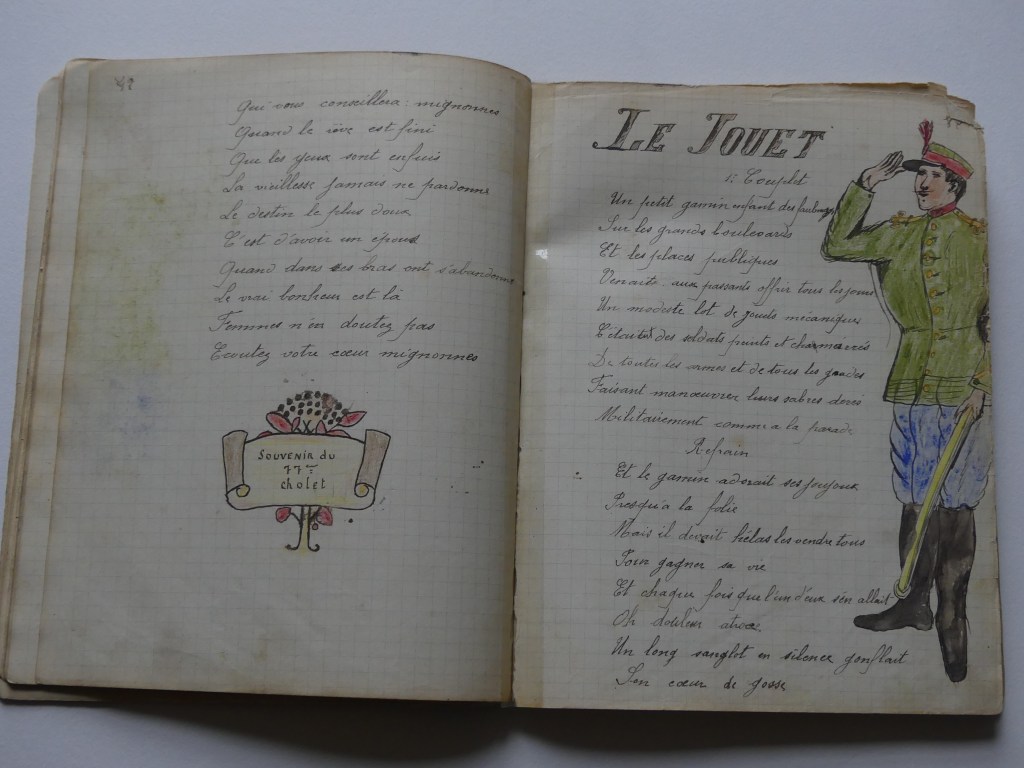 48
Qui vous conseillera mignonnes
Quand le rêve est fini
Que les yeux sont enfuis
La vieillesse jamais ne pardonne
Le destin le plus doux
C'est d'avoir un époux
Quand dans ses bras ont s'abandonne
Le vrai bonheur est là
Femmes n'en doutez pas
Ecoutez votre cœur mignonnes
Souvenir du
77me
cholet
LE JOUET
1: Couplet
Un petit gamin enfant des faubourgs
Sur les grands boulevards
Et les places publiques
Venait aux passants offrir tous les jours
Un modeste lot de jouets mécaniques
C'etait des soldats peints et chamarrés
De toutes les armes et de tous les grades
Faisant manœuvrer leurs sabres dorés
Militairement comme a la parade
Refrain
Et le gamin adorait ses joujoux
Presqu'a la folie
Mais il devait hélas les vendre tous
Pour gagner sa vie
Et chaque fois que l'un d'eux s'en allait
Oh douleur atroce
Un long sanglot en silence gonflait
Son cœur de gosse